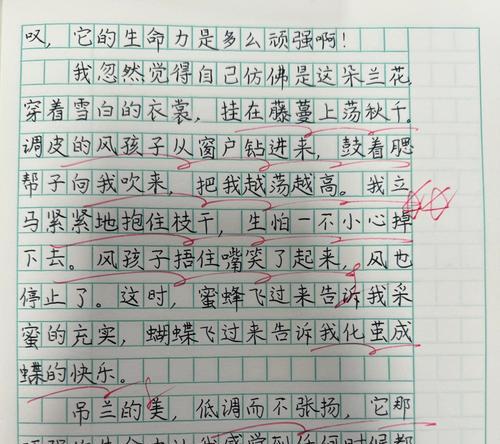 叹，它的生命力是多么顽强啊！
我忽然觉得自己仿佛是这朵兰花，
穿着雪白的衣裳，挂在藤蔓上荡秋千。
调皮的风孩子从窗户钻进来，鼓着腮
帮子向我吹来，把我越荡越高。我立
马紧紧地抱住枝干，生怕一不小心掉
下去。风孩子捂住嘴笑了起来，风也
停止了。这时，蜜蜂飞过来告诉我采
蜜的充实，蝴蝶飞过来告诉我化茧成
蝶的快乐。
吊兰的美，低调而不张扬，它那